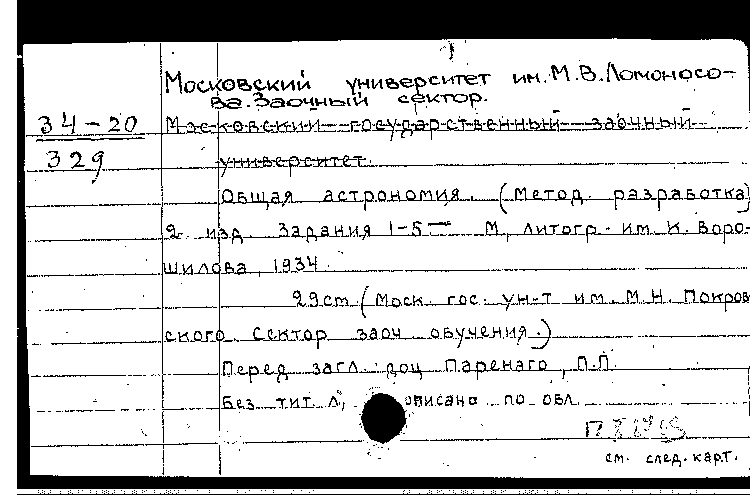 Московский университет им. М.В. Ломоносо-
ва. Заочный сектор.
34-20
329
Московский государственный заочный
университет.
Общая астрономия. (Метод. разработка)
2 изд. Задания 1-5 — М., литогр. им. К. Воро-
шилова, 1934.
29 cm (Моск. гос. ун-т им. М.Н. Покров
ского. Сектор заоч. обучения.)
Перед загл.: доц Паренаго, П.П.
Без тит. л., описано по обл
см. след. карт.